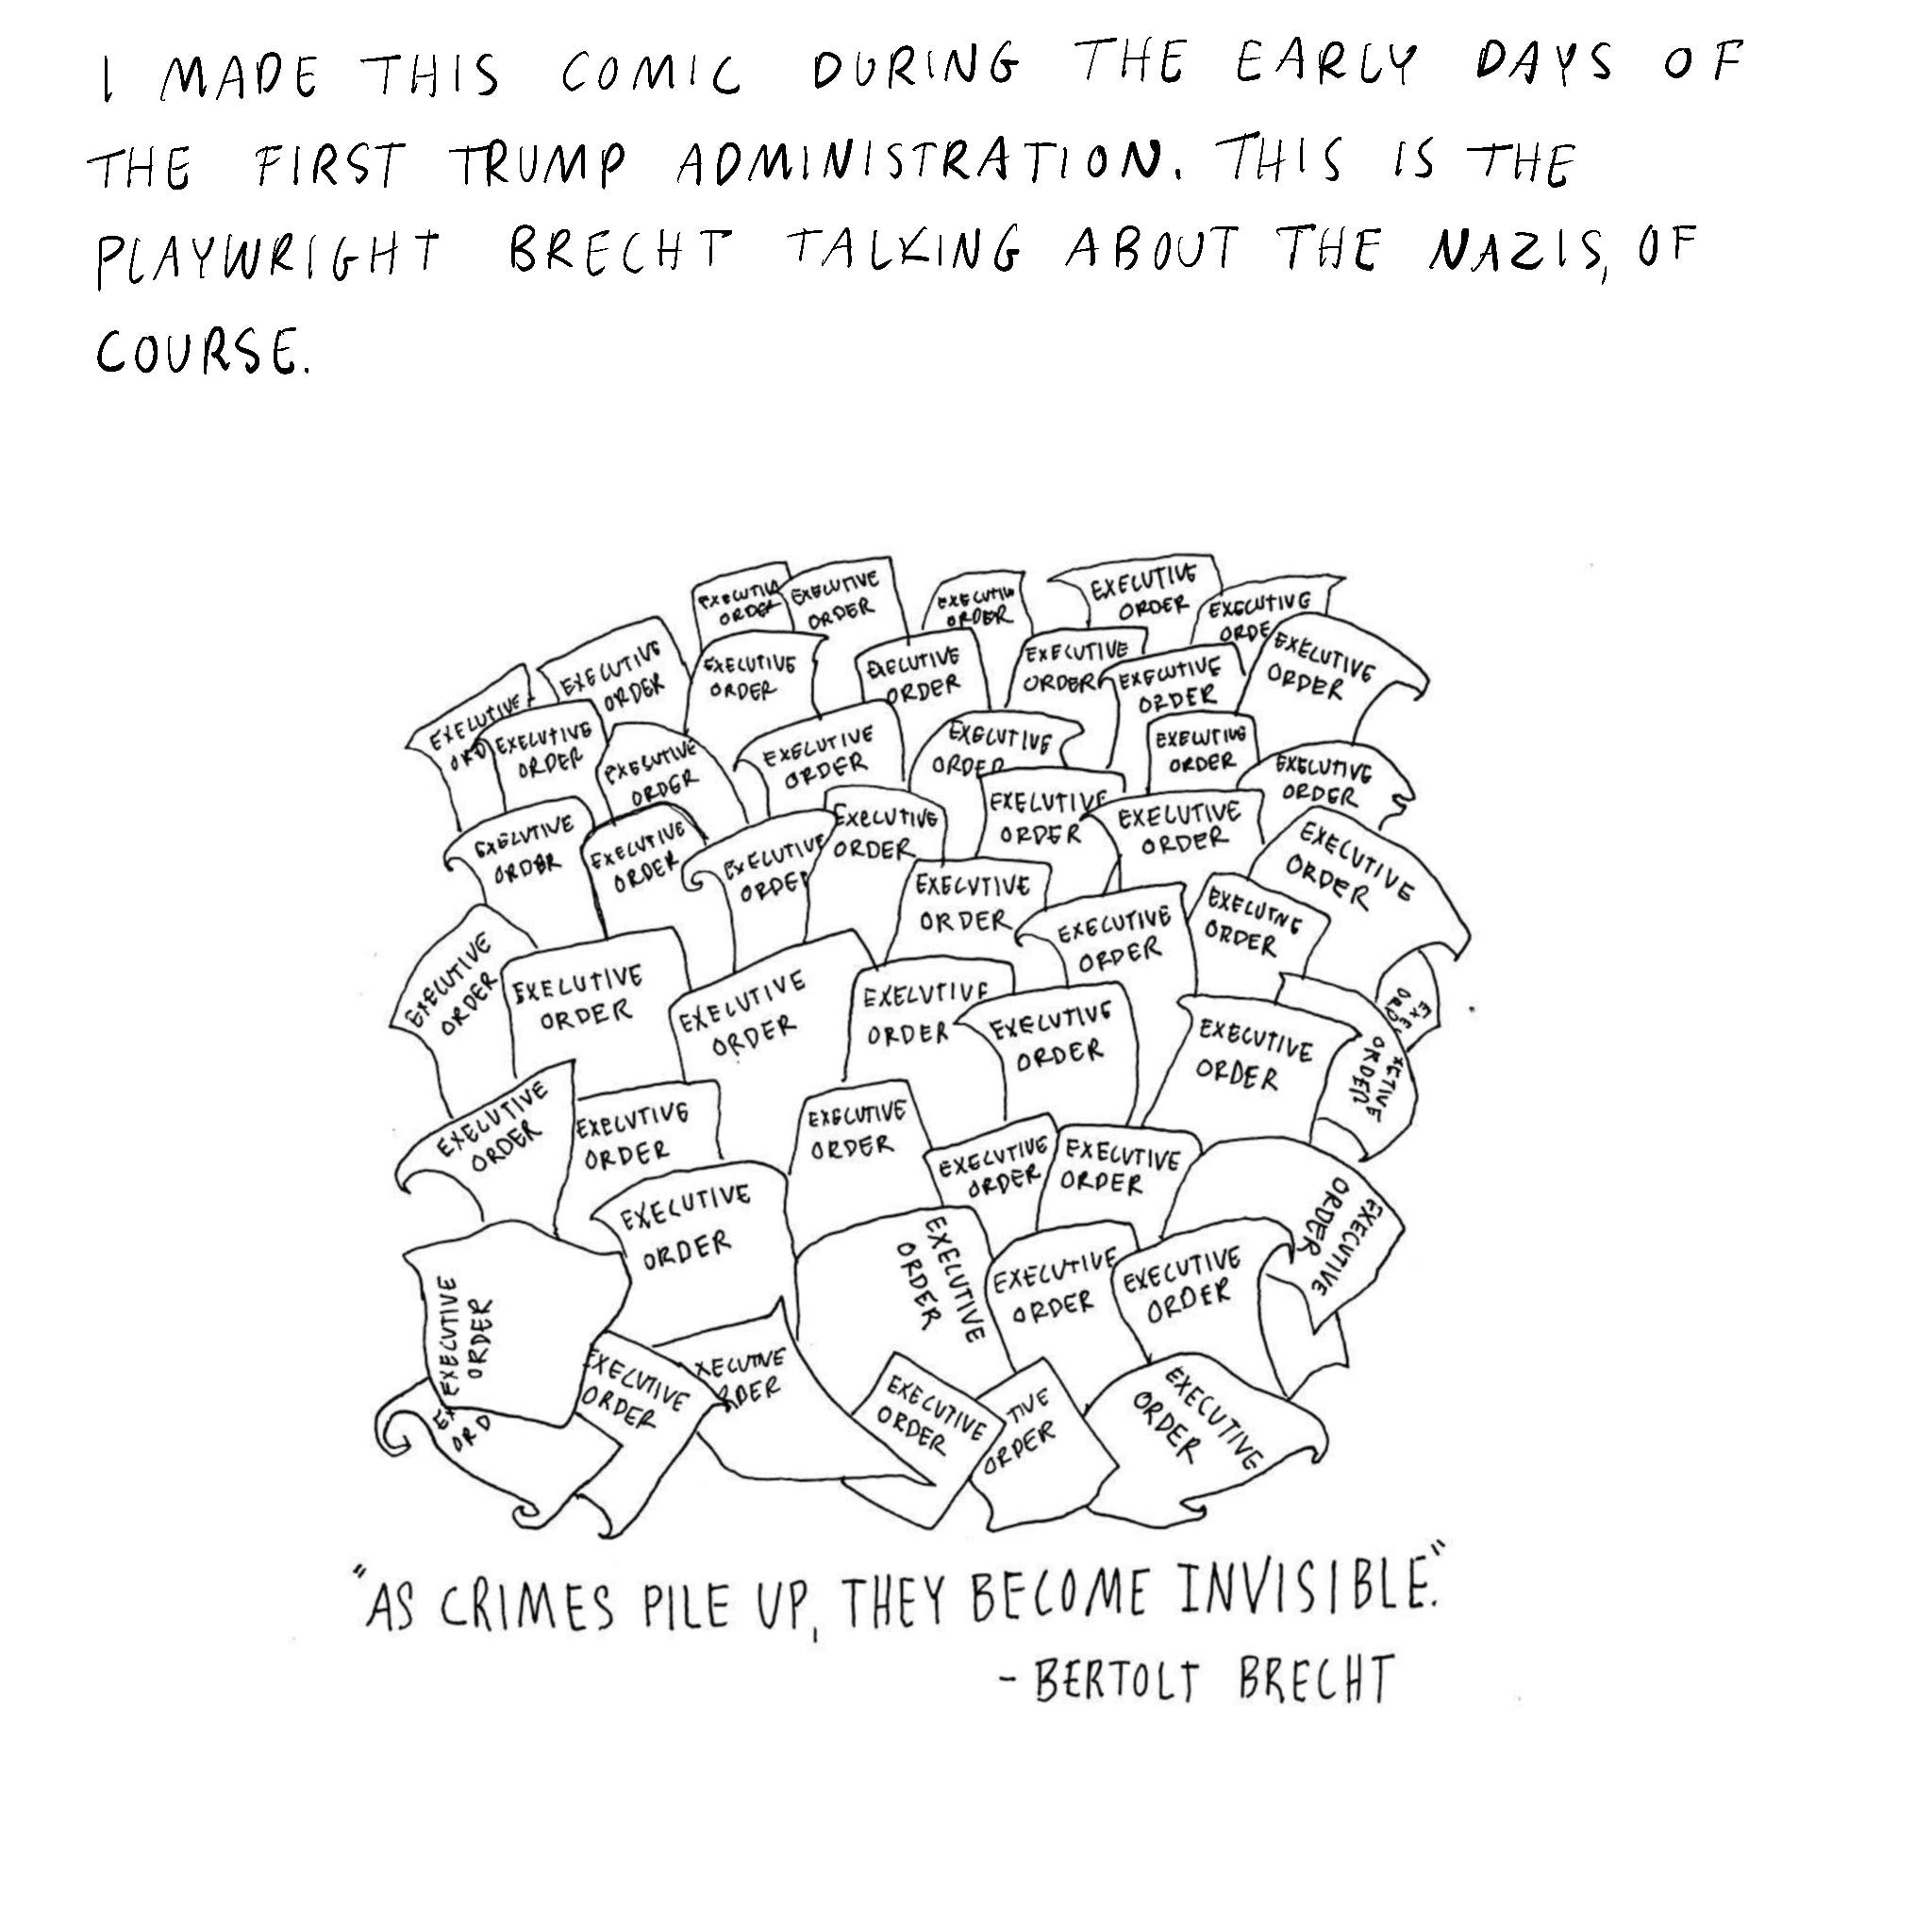 I MADE THIS COMIC DURING THE EARLY DAYS OF
THE FIRST TRUMP ADMINISTRATION. THIS IS THE
PLAYWRIGHT BRECHT TALKING ABOUT THE NAZIS, OF
COURSE.
EXECUTIVE
ORDER
EXECUTIVE
ORDER
EXECUTIVE
ORDER
EXECUTIVE
ORDER
EXECUTIVE
ORDE
EXECUTIVE
ORDER
EXECUTIVE
ORDER
EXECUTIVE
ORDER
EXECUTIVE
ORDER
EXECUTIVE
ORDER
EXECUTIVE
ORDER
EXECUTIVE
ORD
EXECUTIVE
ORDER
EXECUTIVE
ORDER
EXECUTIVE
ORDER
EXECUTIVE
ORDER
EXECUTIVE
ORDER
EXECUTIVE
ORDER
EXECUTIVE
ORDER
EXECUTIVE
ORDER
EXECUTIVE
ORDER
EXECUTIVE
ORDER
EXECUTIVE
ORDER
EXECUTIVE
ORDER
EXECUTIVE
ORDER
EXECUTIVE
ORDER
EXECUTIVE
ORDER
EXECUTIVE
ORDER
EXECUTIVE
ORDER
EXECUTIVE
ORDER
EXECUTIVE
ORDER
EXECUTIVE
ORDER
EXECUTIVE
ORDER
EXECUTIVE
ORDER
EXECUTIVE
ORDER
EXECUTIVE
ORDER
ORDER
EXECUTIVE
ORDER
EXECUTIVE
ORDER
EXECUTIVE
ORDER
EXECUTIVE
ORDER
EXECUTIVE
ORDER
EXECUTIVE
ORDER
EXECUTIVE
ORDER
EXECUTIVE
ORDER
EXECUTIVE
ORDER
EXECUTIVE
ORDER
EXECUTIVE
ORDER
EX
ORD
EXECUTIVE
ORDER
XECUTIVE
RDER
EXECUTIVE
ORDER
TIVE
ORDER
EXECUTIVE
ORDER
"AS CRIMES PILE UP, THEY BECOME INVISIBLE."
- BERTOLT BRECHT